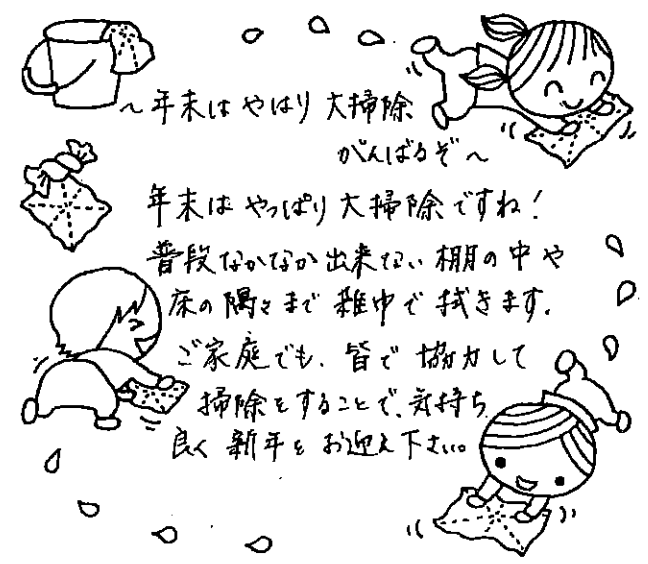 ～年末はやはり大掃除
がんばるぞ～
年末はやっぱり大掃除ですね!
普段なかなか出来ない棚の中や
床の隅々まで雑巾で拭きます。
ご家庭でも、皆で協力して
掃除をすることで、気持ち
良く新年をお迎え下さい。